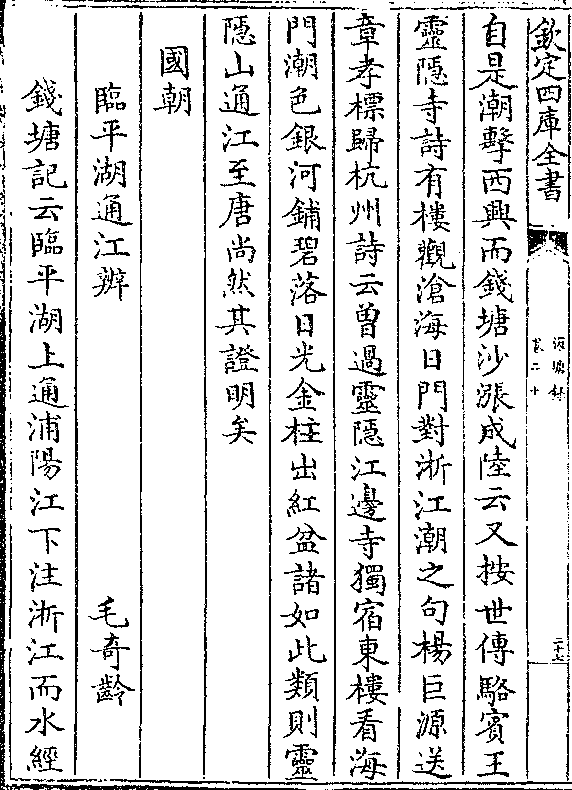 欽定四庫全書
卷二十
二十七
自是潮擊西興而錢塘沙漲成陸云又按世傳駱賓王
靈隱寺詩有樓觀滄海日門對浙江潮之句楊巨源送
章孝標歸杭州詩云曾過靈隱江邊寺獨宿東樓看海
門潮色銀河鋪碧落日光金柱出紅盆諸如此類則靈
隱山通江至唐尚然其證明矣
國朝
臨平湖通江辨 毛奇齡
錢塘記云臨平湖上通浦陽江下注浙江而水經